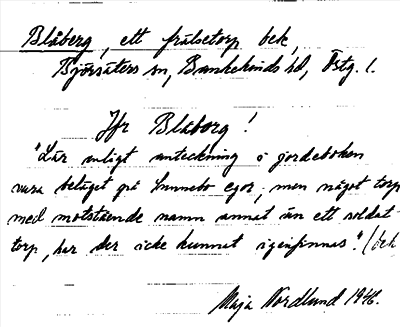 Blåberg, ett frälsetorp bek,
Björsäters sn, Bankekinds hd, Östg. l.
Jfr Blåborg!
"Lär enligt anteckning i jordeboken
vara beläget på Sunnebo egor, men något torp
med motstående namn annat än ett soldat
torp, har der icke kunnat igenfinnas." (bek
Maja Nordlund 1946.